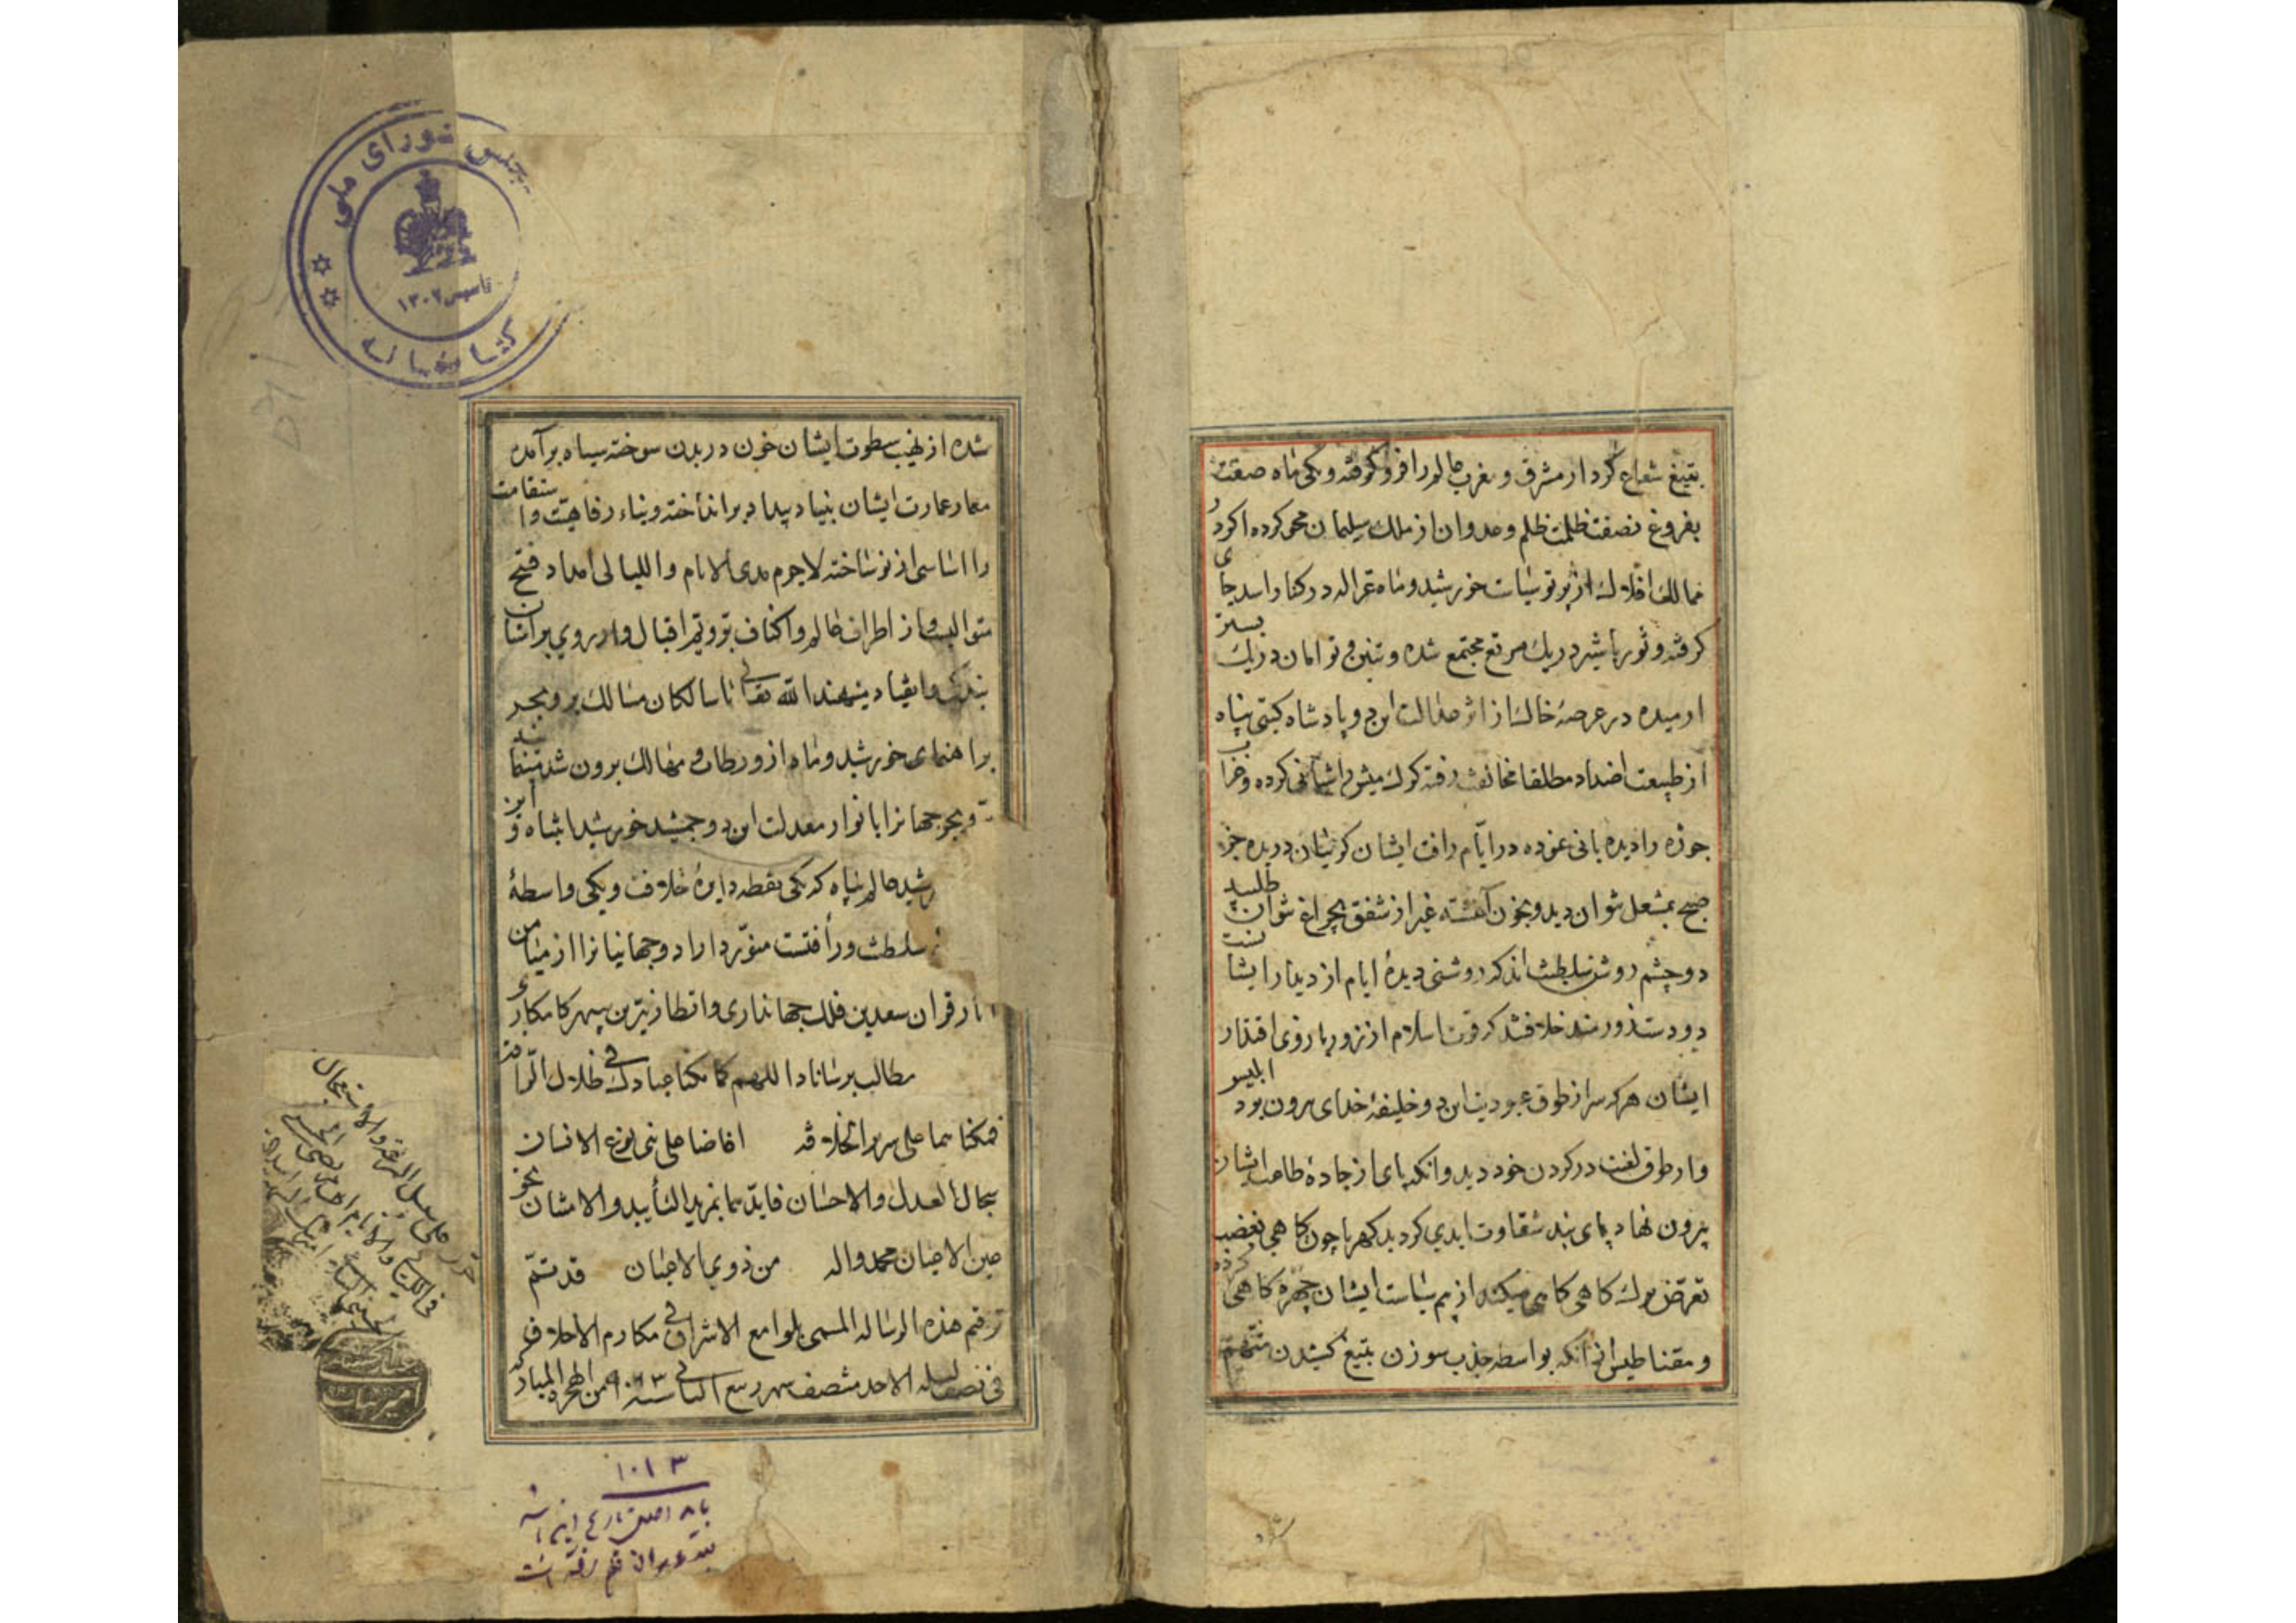 بتیغ شعاع کردار مشرق و مغرب عالم را فرو گرفته و یکی ماه صفت
بفروغ نصفت ظلمت ظلم و عدوان از ملک سلیمان محو کرده اگر در
ممالک افلاک از پرتو سیاست خورشید و ماه غزاله در کنار اسد جای
گرفته و ثور با شیر در یک مرتع مجتمع شده و تنین و توامان در یک بستر
ارمیده در عرصهٔ خاک از اثر عدالت این دو پادشاه گیتی پناه
از طبیعت اضداد مطلقا مخالفت رفته گرگ میش را شبانی کرده و
را دیده بانی نموده در ایام رافت ایشان گریبان دریده جز
صبح بمشعل نتوان دید و بخون آغشته غیر از شفق بچراغ نتوان طلبید
دو چشم روشن سلطنت اند که روشنی دیدهٔ ایام از دیدار ایشانست
دو دست زورمند خلافتند که قوت اسلام از زور بازوی اقتدار
ایشان هر که سر از طوق عبودیت این دو خلیفهٔ خدای برون بود ابلیس
وار طوق لعنت در گردن خود دید و آنکه پای از جادهٔ طاعت ایشان
بیرون نهاد پای بند شقاوت ابدی گردید کهربا چون گاهی بغضب
تعرض برگ کاهی میکند از بیم سیاست ایشان چهره کاهی کرده
و مقناطیس از آنکه بواسطه جذب سوزن بتیغ کشیدن متهم
شده از نهیب سطوت ایشان خون در بدن سوخته سیاه برآمده
معمار عمارت ایشان بنیاد بیداد برانداخته و بناء رفاهیت و استقامت
را اساسی از نو ساخته لاجرم مدی الایام واللیالی امداد فتح
متوالیست و از اطراف عالم و اکناف بر و یم اقبال وار روی بر آستان
بندگی و انقیاد مینهند الله تعالی تا سالکان مسالک بر و بحر
براهنمای خورشید و ماه از ورطات مهالک برون شد
و بحر جهانرا بانوار معدلت این دو جمشید خورشید اشتباه و این
رشید عالم پناه که یکی نقطه دایرهٔ خلافت و یکی واسطهٔ
سلطنت و رأفتست منور داراد و جهانیانرا از میامن
قران سعدین فلک جهانداری و نیرین سپهر کامکاری
مطالب برساناد اللهم کما مکنا عبادک فی ظلال الرافة
فمکنهما علی سریر الخلافة افاضا علی بنی نوع الانسان
سجال العدل والاحسان فایدهما بمزید التأیید والامتنان بحق
عین الاعیان محمد واله من ذوی الاحسان قد تم
ترقیم هذه الرساله المسمی بلوامع الاشراق فی مکارم الاخلاق
فی نصف لیله الاحد منتصف شهر ربیع الثانی سنه ۱۰۱۳ من الهجرة المبارکه
مجلس شورای ملی
تاسیس ۱۳۰۲
کتابخانه
۱۰۱۳